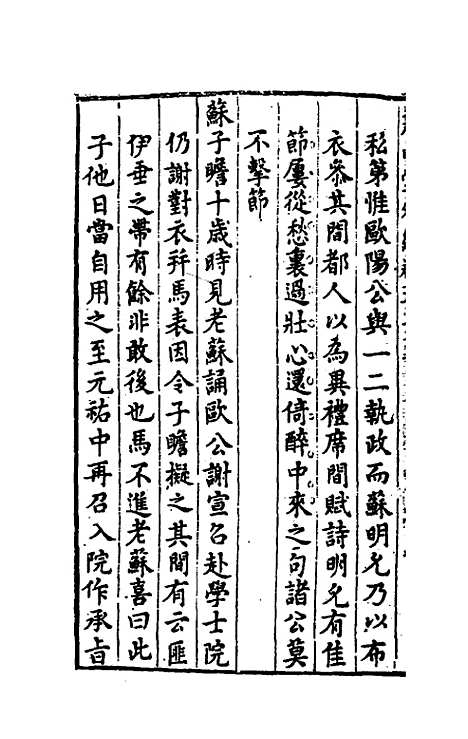 私第惟歐陽公與一二執政而蘇明允乃以布
衣叅其間都人以為異禮席間賦詩明允有佳
節屢從愁裏過壯心還倚醉中來之句諸公莫
不擊節
蘇子瞻十歳時見老蘇誦歐公謝宣召赴學士院
仍謝對衣并馬表因令子瞻擬之其間有云匪
伊垂之帶有餘非敢後也馬不進老蘇喜曰此
子他日當自用之至元祐中再召入院作承旨